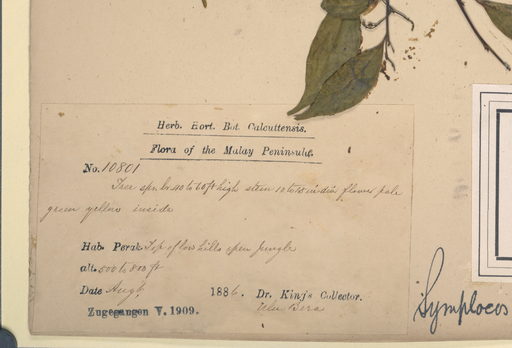 Herb. Hort. Bot. Calcuttensis.
Flora of the Malay Peninsula.
No. 10801
Tree 40 to 60 ft high stem 10 to 18 in dia flower pale
green yellow inside
Hab. Perak Top of low hills open Jungle
alt. 500 to 800 ft
Date Augt 1886. Dr. King's Collector.
Zugegangen V. 1909.
Symplocos